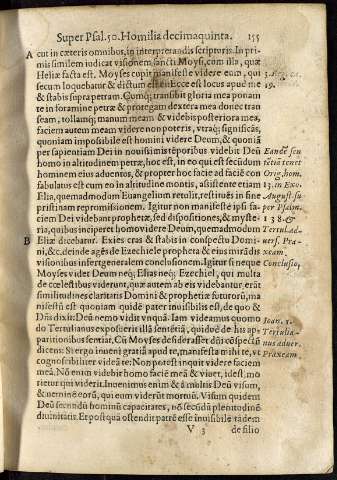 Super Psal. 50. Homilia decimaquinta. 155
A cut in cæteris omnibus, in interpretandis scripturis. In pri-
mis similem iudicat visionem sancti Moysi, com illa, quæ
Heliæ facta est. Moyses cupit manifeste videre eum, qui
secum loquebatur & dictum est ei: Ecce est locus apud me
& stabis supra petram. Cumq; transibit gloria mea ponam
te in foramine petræ & protegam dextera mea donec tran
seam, tollamq; manum meam & videbis posteriora mea,
faciem autem meam videre non poteris, vtraq; significãs,
quoniam impossibile est homini videre Deum, & quoniã
per sapientiam Dei in nouissimis tẽporibus videbit Deum
te homo in altitudinem petræ, hoc est, in eo qui est secundum
hominem eius aduentus, & propter hoc facie ad faciẽ con
fabulatus est cum eo in altitudine montis, assistente etiam
Elia, quemadmodum Euangelium retulit, restituẽs in fine
pristinam repromissionem. Igitur non manifeste ipsã fa-
ciem Dei videbant prophetæ, sed dispositiones, & myste-
ria, quibus inciperet homo videre Deum, quemadmodum
B Eliæ dicebatur. Exies cras & stabis in conspectu Domi-
ni, &c. deinde agẽs de Ezechiele propheta & eius mirãdis
visionibus infert generalem conclusionem. Igitur si neque
Moyses videt Deum neq; Elias neq; Ezechiel, qui multa
de cœlestibus viderunt, quæ autem ab eis videbantur erãt
similitudines claritatis Domini & prophetiæ futurorũ, ma
nifestũ est quoniam quidẽ pater inuisibilis est, de quo &
Dñs dixit: Deũ nemo vidit vnquã. Iam videamus quomo
do Tertulianus exposuerit illã sentẽtiã, quidve de his ap-
paritionibus sentiat. Cũ Moyses desiderasset dñi cõspectũ
dicens: Si ergo inueni gratiã apud te, manifesta mihi te, vt
cognoscibiliter videã te: Non potest inquit videre faciem
meã. Nõ enim videbit homo faciẽ meã & viuet, idest, mo
rietur qui viderit. Inuenimus enim & à multis Deũ visum,
& neminẽ eorũ, qui eum viderũt mortuũ. Visum quidem
Deũ secundũ hominũ capacitates, nõ secũdũ plenitudinẽ
diuinitatis. Et post quã ostendit patrẽ esse inuisibilẽ tãdem
V 3 de filio
19.
Eandẽ sen
tẽtiã tenet
Orig. hom.
13. in Exo.
August. su
per Psalm.
138. &
Tertul. ad-
uers. Pra-
xeam.
Conclusio,
Ioan. 1.
Tertulia-
nus aduer.
Praxeam